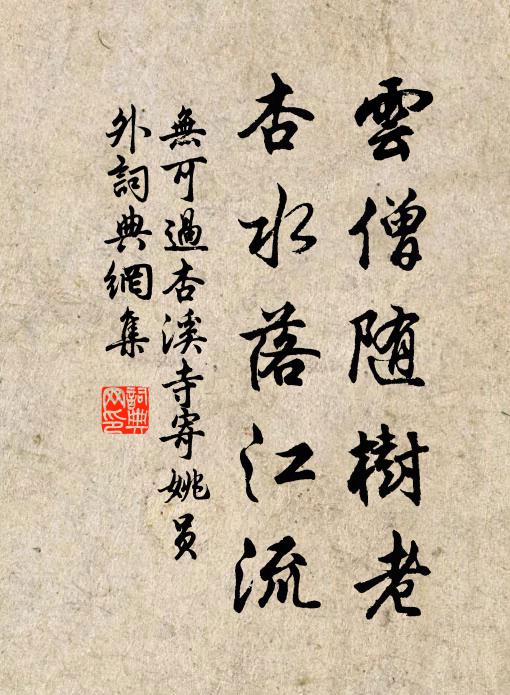 雲僧隨樹老
杏水落江流
無可過杏溪寺寄姚員
外詞典網集
詞典
网印